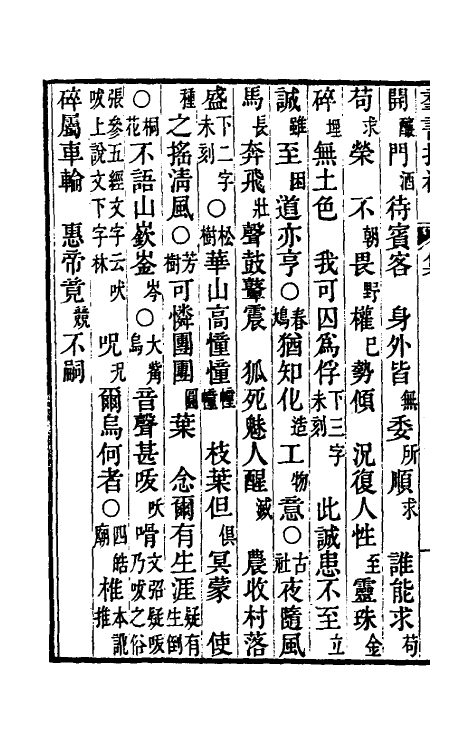 羣書拾補
開釀門酒待賓客　身外皆無委所順求　誰能求苟
苟求榮　不朝畏野權已勢傾　況復人性至靈珠金
碎埋無土色　我可囚為俘下三字未刻　此誠患不至立
誠雖至困道亦亨○春鳩猶知化造工物意○古社夜隨風
馬長奔飛壯聲鼓鼙震　狐死魅人醒滅　農收村落
盛下二字未刻○松樹華山高憧憧幢幢　枝葉但俱冥蒙　使
種之搖清風○芳樹可憐團團圓葉　念爾有生涯疑有生倒
○桐花不語山嶔崟岑○大觜烏音聲甚㕭吠嘺文弨疑㕭乃㕭之俗
張參五經文字云吠㕭上說文下字林　呪況爾烏何者○四皓廟椎本譌推
碎屬車輪　惠帝竟競不嗣